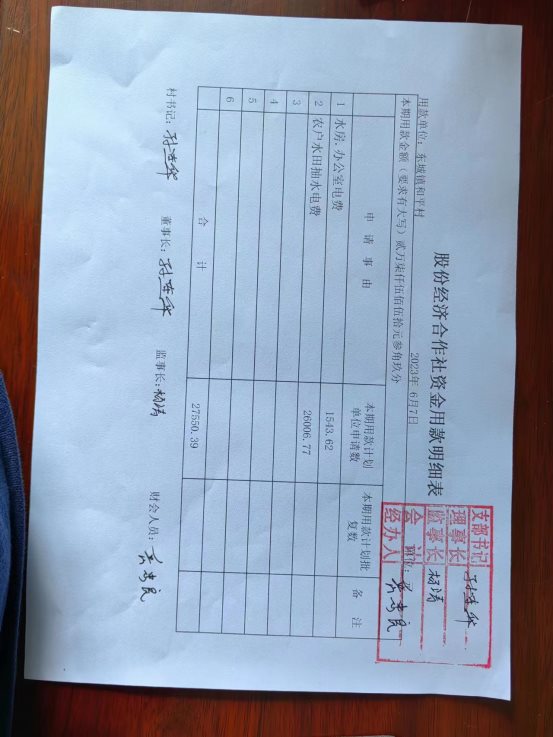 股份经济合作社资金用款明细表
2023年 6月7日
用款单位：东城镇和平村
单位：
本期用款金额（要求有大写）贰万柒仟伍佰伍拾元叁角玖分
申 请 事 由 本期用款计划单位申请数 本期用款计划批复数 备 注
1 水房、办公室电费 1543.62
2 农户水田抽水电费 26006.77
3
4
5
6
合 计 27550.39
村书记： 董事长： 监事长：杨涛 财会人员：
支部书记
理事长
监事长 杨涛
会计
经办人